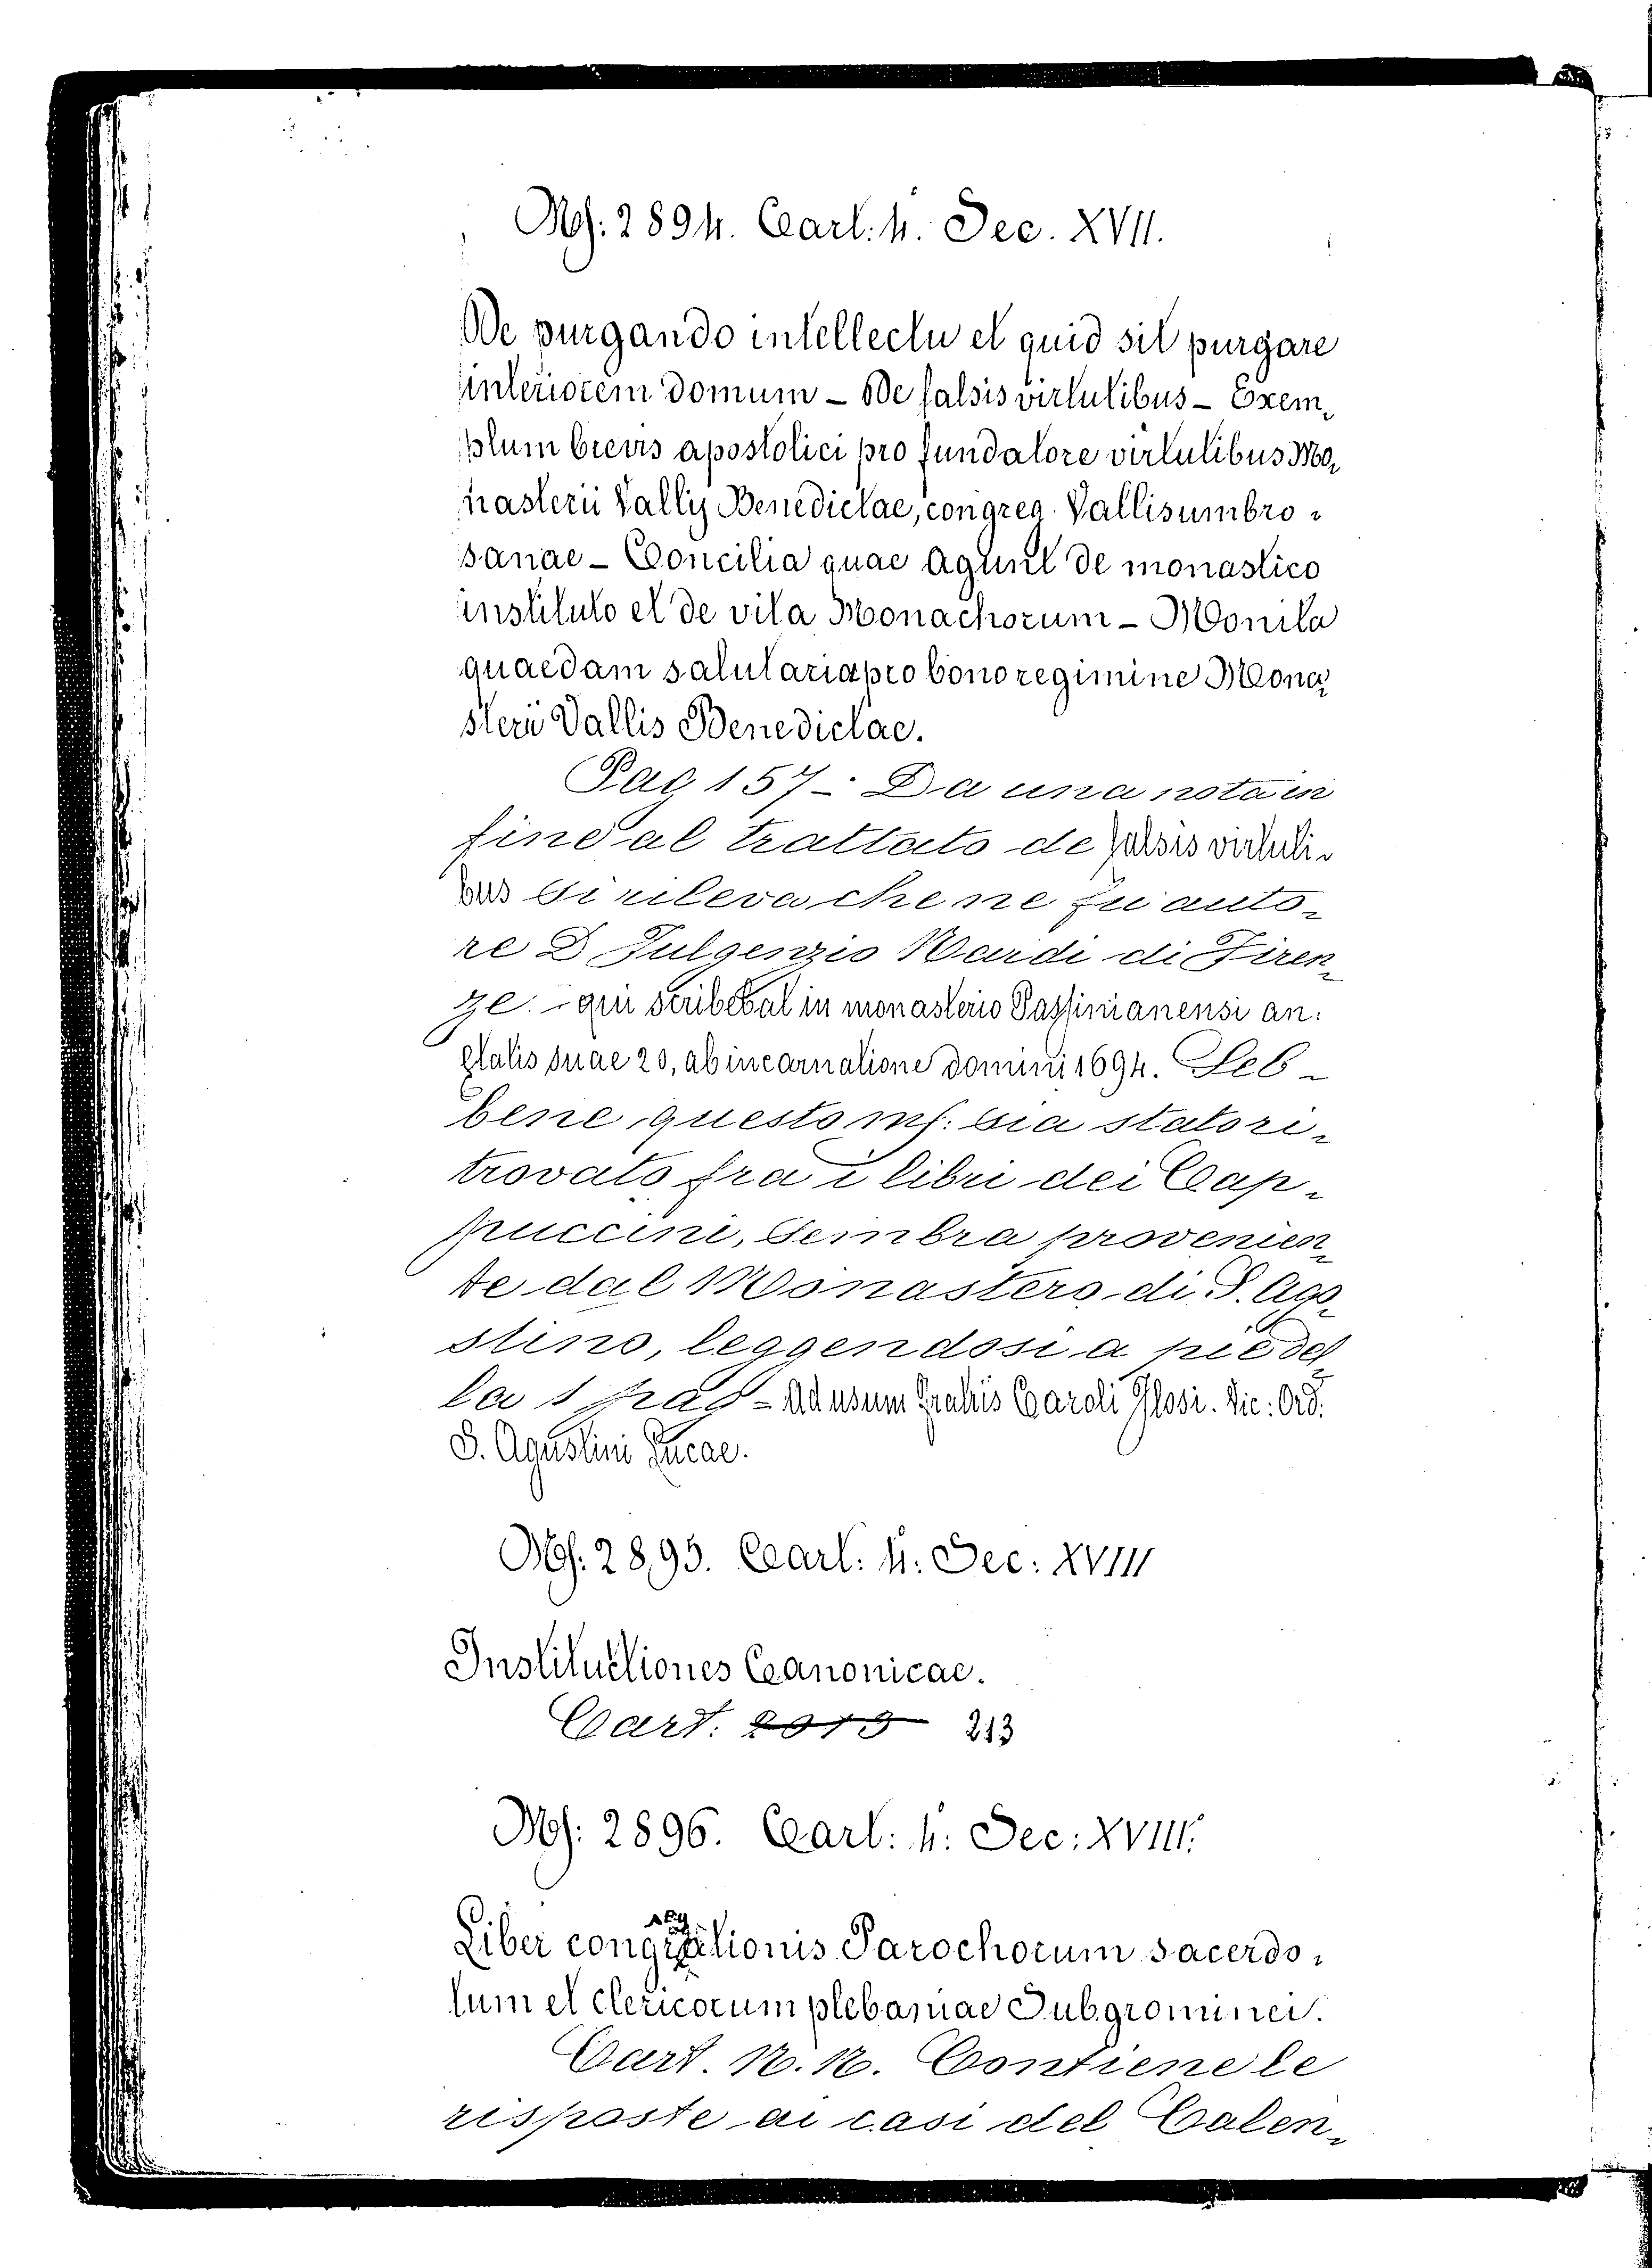 Ms: 2894. Cart: 4. Sec. XVII.
De purgando intellectu et quid sit purgare
interiorem domum - De falsis virtutibus - Exem-
plum brevis apostolici pro fundatore virtutibus Mo-
nasterii Vallis Benedictae, congreg. Vallisumbro-
sanae - Concilia quae agunt de monastico
instituto et de vita Monachorum - Monita
quaedam salutaria pro bono regimine Mona-
sterii Vallis Benedictae.
Pag 157 - Da una nota in
fine al trattato de falsis virtuti-
bus si rileva che ne fu auto-
re D Fulgenzio Nardi di Firen-
ze: - qui scribebat in monasterio Passinianensi an:
etatis suae 20, ab incarnatione domini 1694. Seb-
bene questo ms: sia stato ri-
trovato fra i libri dei Cap-
puccini, sembra provenien-
te dal Monastero di S. Ago-
stino, leggendosi a piè del-
la 1 pag - Ad usum Fratris Caroli Vic: Ord.
S. Agustini Lucae.
Ms: 2895. Cart: 4: Sec: XVIII
Instituctiones Canonicae.
Cart: 2013 213
Ms: 2896. Cart: 4: Sec: XVIII.
Liber congregationis Parochorum sacerdo-
tum et clericorum plebaniae Subgrominei.
Cart. N. N. Contiene le
risposte ai casi del Calen-